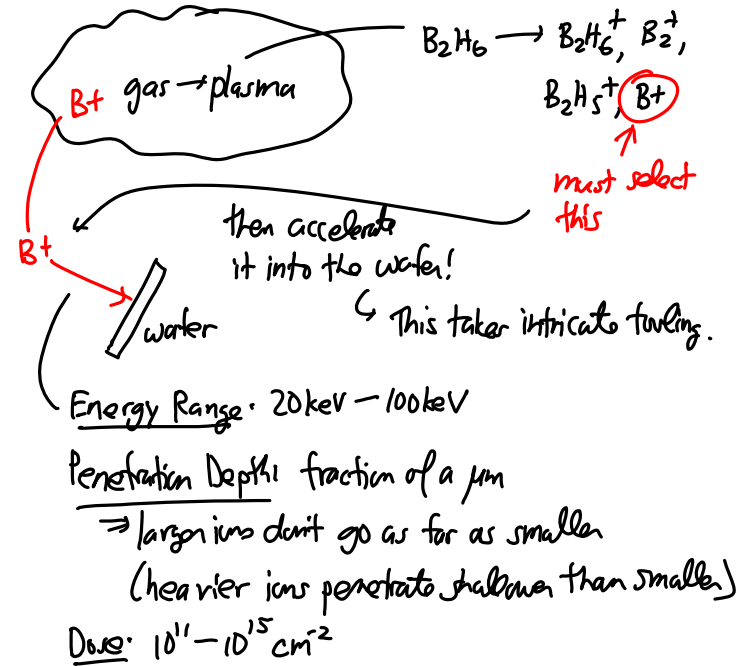 B₂H₆ → B₂H₆⁺, B₂⁺,
B+ gas → plasma
B₂H₅⁺, B+
must select
this
then accelerate
it into the wafer!
B+
This takes intricate tooling.
wafer
Energy Range: 20keV – 100keV
Penetration Depth: fraction of a μm
⇒ larger ions don't go as far as smaller
(heavier ions penetrate shallower than smaller)
Dose: 10¹¹ – 10¹⁵ cm⁻²